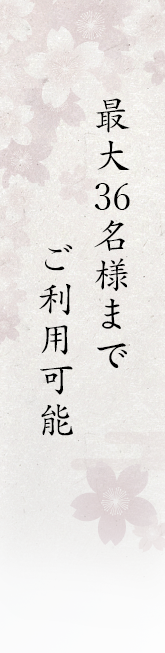 最大36名様まで
ご利用可能